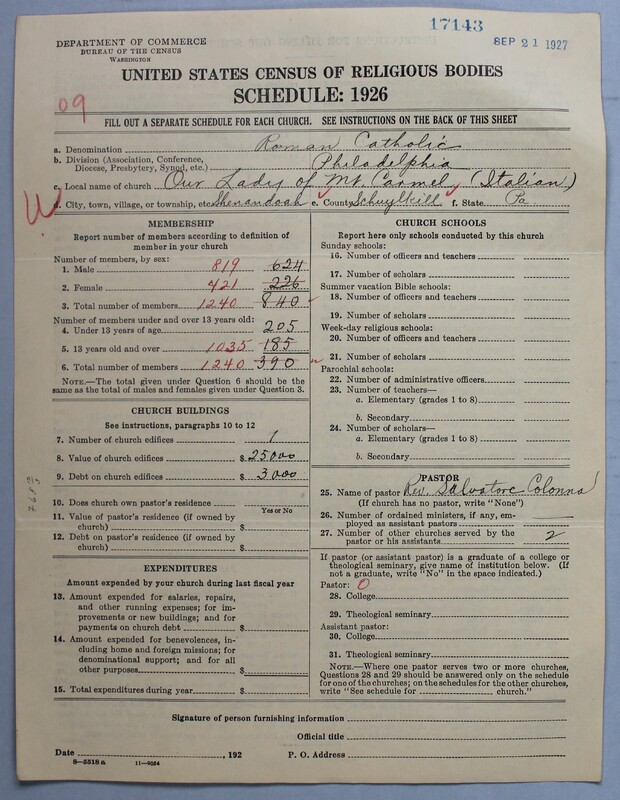 17143
SEP 21 1927
DEPARTMENT OF COMMERCE
BUREAU OF THE CENSUS
WASHINGTON
UNITED STATES CENSUS OF RELIGIOUS BODIES
SCHEDULE: 1926
09
FILL OUT A SEPARATE SCHEDULE FOR EACH CHURCH. SEE INSTRUCTIONS ON THE BACK OF THIS SHEET
a. Denomination Roman Catholic
b. Division (Association, Conference, Diocese, Presbytery, Synod, etc.) Philadelphia
c. Local name of church Our Lady of Mt. Carmel (Italian)
d. City, town, village, or township, etc. Shenandoah e. County Schuylkill f. State Pa
MEMBERSHIP
Report number of members according to definition of
member in your church
Number of members, by sex:
1. Male 819 624
2. Female 421 226
3. Total number of members 1240 840
Number of members under and over 13 years old:
4. Under 13 years of age 205
5. 13 years old and over 1035 185
6. Total number of members 1240 390
NOTE.—The total given under Question 6 should be the
same as the total of males and females given under Question 3.
CHURCH BUILDINGS
See instructions, paragraphs 10 to 12
7. Number of church edifices 1
8. Value of church edifices $ 25000
9. Debt on church edifices $ 3000
10. Does church own pastor's residence
Yes or No
11. Value of pastor's residence (if owned by
church) $
12. Debt on pastor's residence (if owned by
church) $
EXPENDITURES
Amount expended by your church during last fiscal year
13. Amount expended for salaries, repairs,
and other running expenses; for im-
provements or new buildings; and for
payments on church debt $
14. Amount expended for benevolences, in-
cluding home and foreign missions; for
denominational support; and for all
other purposes $
15. Total expenditures during year $
CHURCH SCHOOLS
Report here only schools conducted by this church
Sunday schools:
16. Number of officers and teachers
17. Number of scholars
Summer vacation Bible schools:
18. Number of officers and teachers
19. Number of scholars
Week-day religious schools:
20. Number of officers and teachers
21. Number of scholars
Parochial schools:
22. Number of administrative officers
23. Number of teachers—
a. Elementary (grades 1 to 8)
b. Secondary
24. Number of scholars—
a. Elementary (grades 1 to 8)
b. Secondary
PASTOR
25. Name of pastor Rev. Salvatore Colonna
(If church has no pastor, write "None")
26. Number of ordained ministers, if any, em-
ployed as assistant pastors
27. Number of other churches served by the
pastor or his assistants 2
If pastor (or assistant pastor) is a graduate of a college or
theological seminary, give name of institution below. (If
not a graduate, write "No" in the space indicated.)
Pastor: 0
28. College
29. Theological seminary
Assistant pastor:
30. College
31. Theological seminary
NOTE.—Where one pastor serves two or more churches,
Questions 28 and 29 should be answered only on the schedule
for one of the churches; on the schedules for the other churches,
write "See schedule for church."
Signature of person furnishing information
Official title
Date , 192 P. O. Address
8—5518a 11—9054